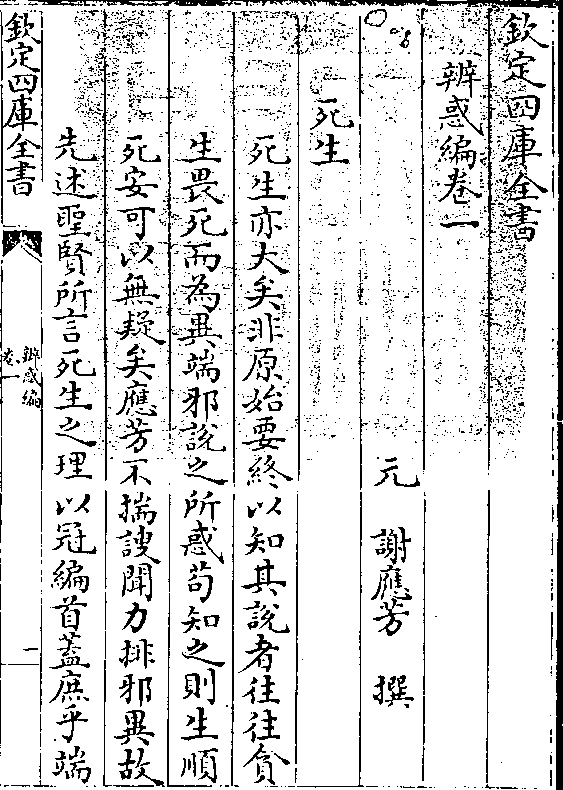 欽定四庫全書
辨惑編卷一
元 謝應芳 撰
死生
死生亦大矣非原始要終以知其說者往往貪
生畏死而為異端邪說之所惑苟知之則生順
死安可以無疑矣應芳不揣謏聞力排邪異故
先述聖賢所言死生之理以冠編首蓋庶乎端
欽定四庫全書
辨惑編
卷一
一